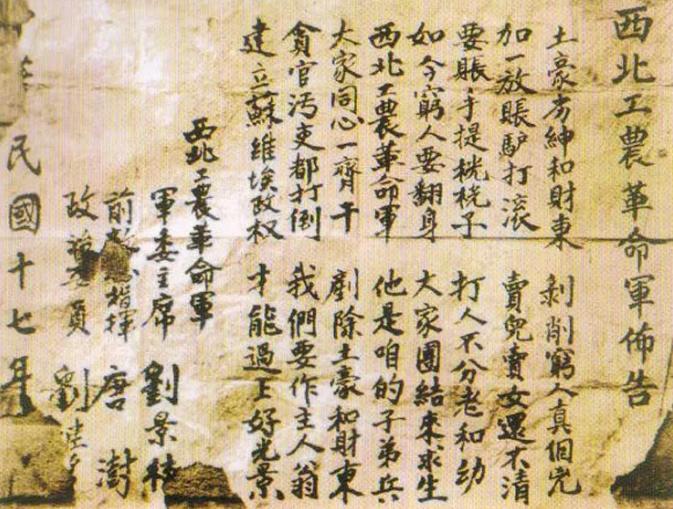 西北工農革命軍佈告
土豪劣紳和財東 剝削窮人真個兇
加一放賬驢打滾 賣兒賣女還不清
要賬手提桄桄子 打人不分老和幼
如今窮人要翻身 大家團結來求生
西北工農革命軍 他是咱的子弟兵
大家同心一齊干 剷除土豪和財東
貪官汚吏都打倒 我們要作主人翁
建立蘇維埃政权 才能過上好光景
西北工農革命軍
軍委主席 劉景桂
前敵總指揮 唐澍
政 委員 劉
民國十七年